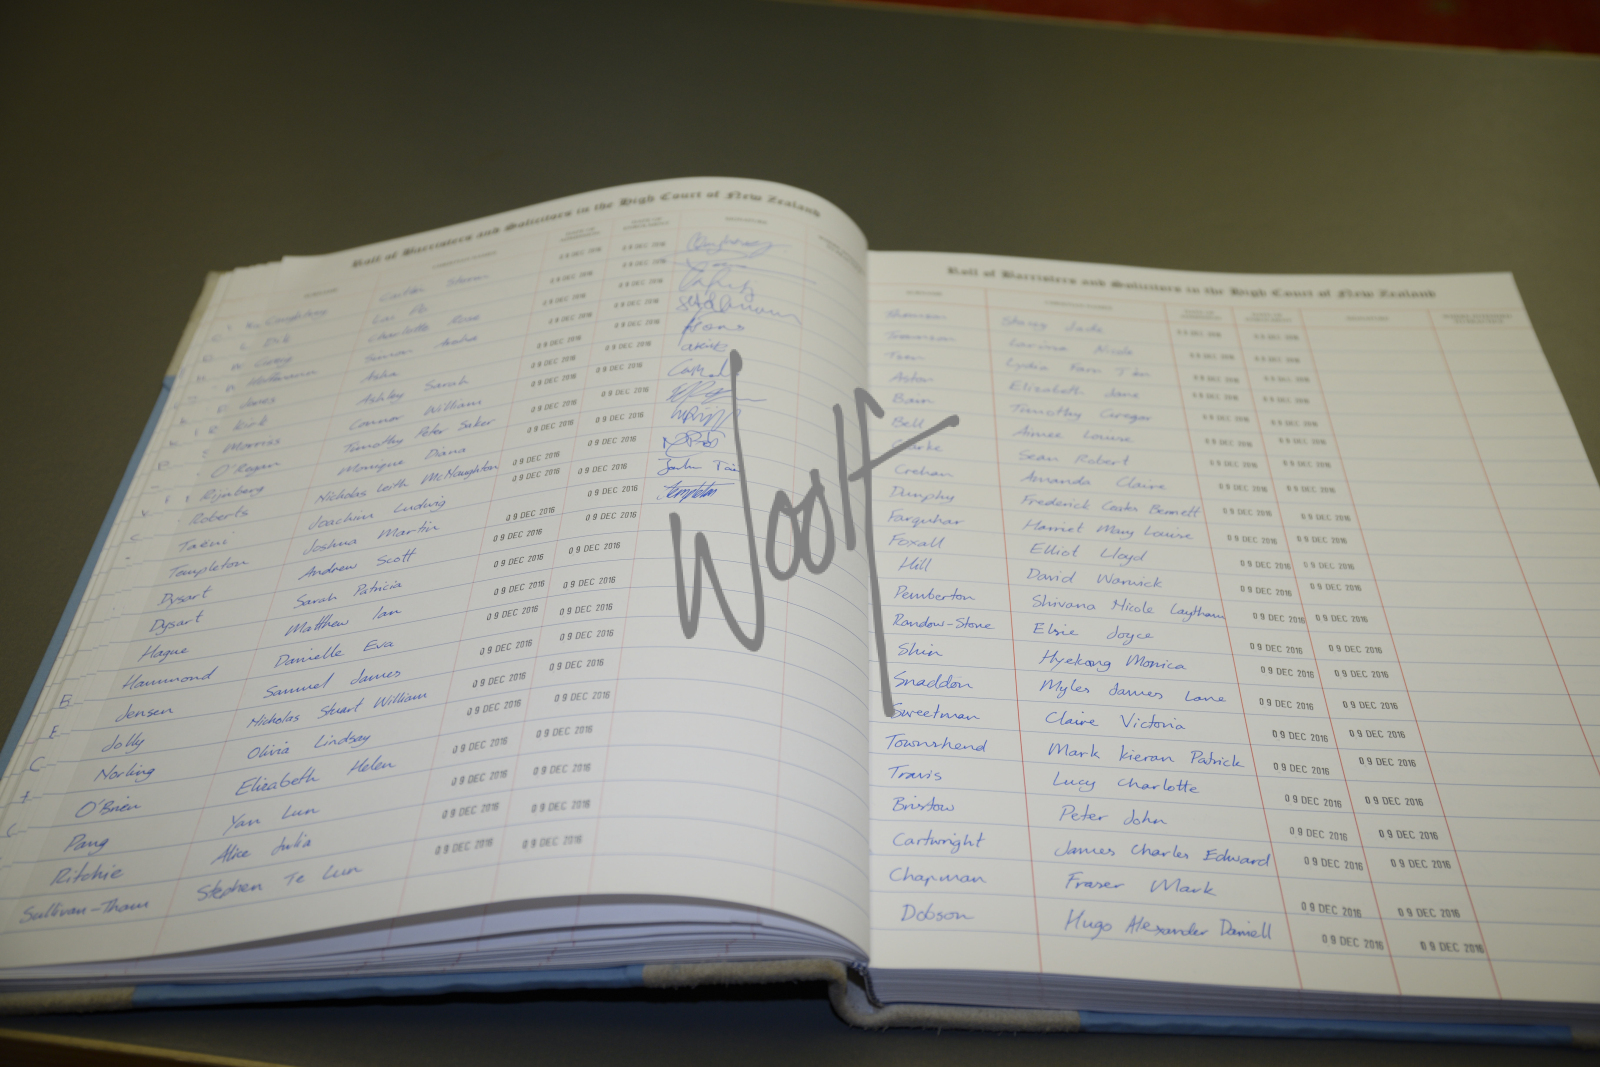 Roll of Barristers and Solicitors in the High Court of New Zealand
Charlotte Rose 09 DEC 2016 09 DEC 2016
Jones Asha 09 DEC 2016 09 DEC 2016
Kirk Ashley Sarah 09 DEC 2016 09 DEC 2016
Morriss Connor William 09 DEC 2016 09 DEC 2016
O'Regan Timothy Peter Siker 09 DEC 2016 09 DEC 2016
Rijnberg Monique Diana 09 DEC 2016 09 DEC 2016
Roberts Nicholas Leith McNaughton 09 DEC 2016 09 DEC 2016
Joachim Ludwig 09 DEC 2016 09 DEC 2016
Templeton Joshua Martin 09 DEC 2016 09 DEC 2016 Templeton
Dysart Andrew Scott 09 DEC 2016 09 DEC 2016
Dysart Sarah Patricia 09 DEC 2016 09 DEC 2016
Hague Matthew Ian 09 DEC 2016 09 DEC 2016
Hammond Danielle Eva 09 DEC 2016 09 DEC 2016
Jensen Samuel James 09 DEC 2016 09 DEC 2016
Jolly Nicholas Stuart William 09 DEC 2016 09 DEC 2016
Norling Olivia Lindsay 09 DEC 2016 09 DEC 2016
O'Brien Elizabeth Helen 09 DEC 2016 09 DEC 2016
Pang Yan Lun 09 DEC 2016 09 DEC 2016
Ritchie Alice Julia 09 DEC 2016 09 DEC 2016
Sullivan-Tham Stephen Te Lun 09 DEC 2016 09 DEC 2016
Woolf
Roll of Barristers and Solicitors in the High Court of New Zealand
Stacey Jade 09 DEC 2016 09 DEC 2016
Larissa Nicole 09 DEC 2016 09 DEC 2016
Teen Lydia Fann 09 DEC 2016 09 DEC 2016
Aston Elizabeth Jane 09 DEC 2016 09 DEC 2016
Bain Timothy Gregor 09 DEC 2016 09 DEC 2016
Bell Aimee Louise 09 DEC 2016 09 DEC 2016
Clarke Sean Robert 09 DEC 2016 09 DEC 2016
Crehan Amanda Claire 09 DEC 2016 09 DEC 2016
Dunphy Frederick Coates Bennett 09 DEC 2016 09 DEC 2016
Farquhar Harriet Mary Louise 09 DEC 2016 09 DEC 2016
Foxall Elliot Lloyd 09 DEC 2016 09 DEC 2016
Hill David Warwick 09 DEC 2016 09 DEC 2016
Pemberton Shivana Nicole Laytham 09 DEC 2016 09 DEC 2016
Randow-Stone Elsie Joyce 09 DEC 2016 09 DEC 2016
Shin Hyekong Monica 09 DEC 2016 09 DEC 2016
Snaddon Myles James Lane 09 DEC 2016 09 DEC 2016
Sweetman Claire Victoria 09 DEC 2016 09 DEC 2016
Townshend Mark Kieran Patrick 09 DEC 2016 09 DEC 2016
Travis Lucy Charlotte 09 DEC 2016 09 DEC 2016
Bristow Peter John 09 DEC 2016 09 DEC 2016
Cartwright James Charles Edward 09 DEC 2016 09 DEC 2016
Chapman Fraser Mark 09 DEC 2016 09 DEC 2016
Dobson Hugo Alexander Daniell 09 DEC 2016 09 DEC 2016